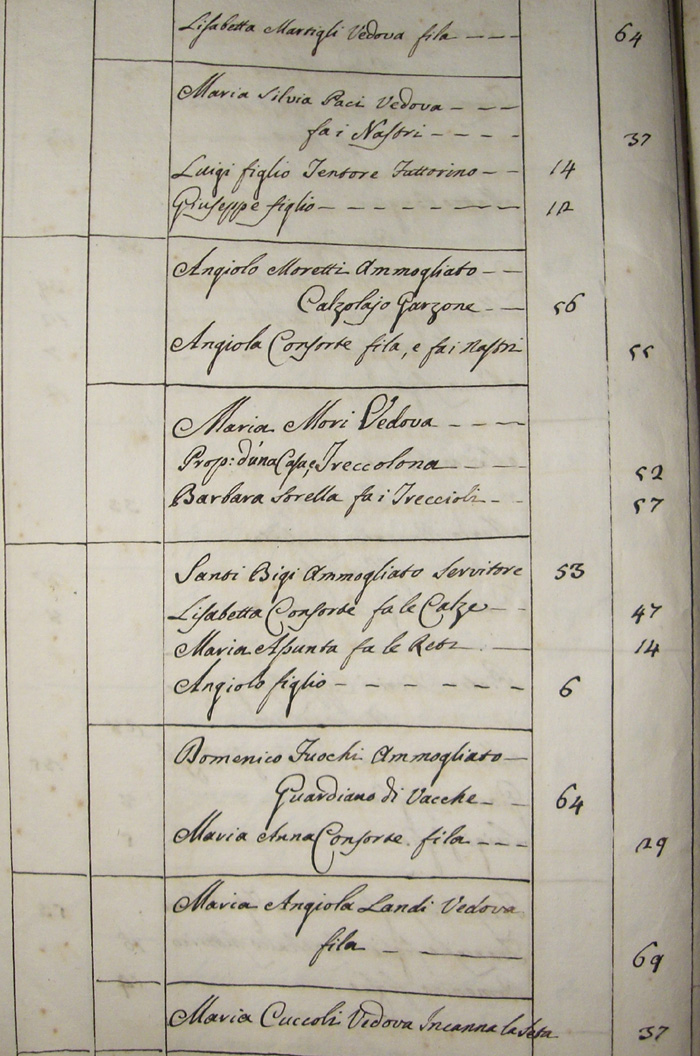 Lisabetta Martigli Vedova fila - - - 64
Maria Silvia Paci Vedova - - -
fa i Nastri - - - - 37
Luigi figlio Tentore Fattorino - - 14
Giuseppe figlio - - - - - - - - 12
Angiolo Moretti Ammogliato - -
Calzolajo Garzone - - 56
Angiola Consorte fila, e fa i nastri 55
Maria Mori Vedova - - - -
Prop: d'una Casa, e Treccolona - - - - 52
Barbara Sorella fa i Treccioli - - - 57
Santi Bigi Ammogliato Servitore 53
Lisabetta Consorte fa le Calze - - 47
Maria Assunta fa le Reti - - 14
Angiolo figlio - - - - - - - 6
Domenico Fuochi Ammogliato -
Guardiano di Vacche - - 64
Maria Anna Consorte fila - - - 29
Maria Angiola Landi Vedova
fila - - - - 69
Maria Cuccoli Vedova Incanna la Seta 37